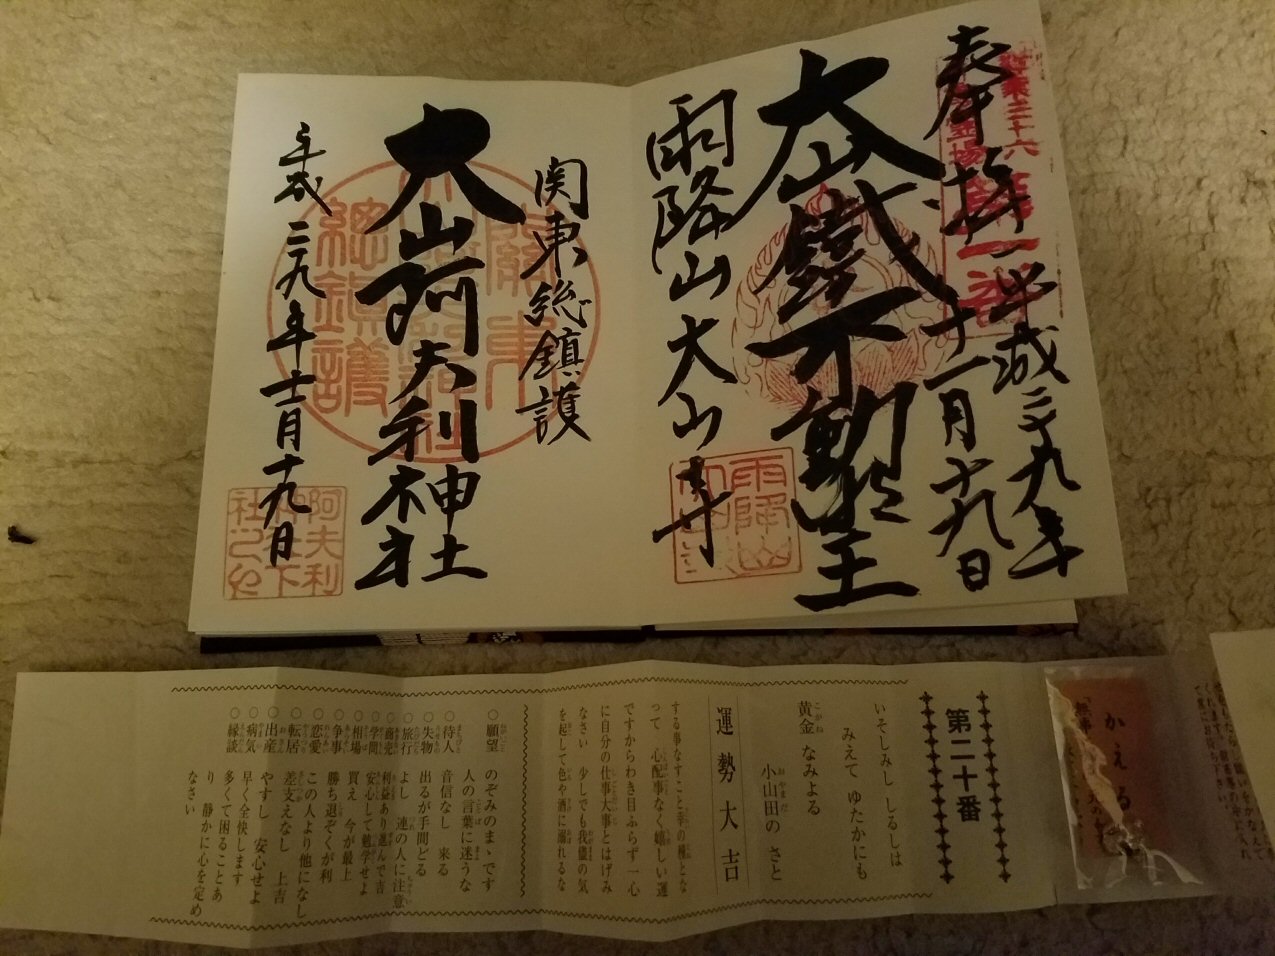 奉拝
平成二十九年
十一月十九日
大山鐵不動明王
雨降山大山寺
関東総鎮護
大山阿夫利神社
平成二十九年十一月十九日
第二十番
いそしみし しるしは
みえて ゆたかにも
黄金 なみよる
小山田の さと
運勢大吉
する事なすこと幸の種とな
って 心配事なく嬉しい運
ですからわき目ふらず一心
に自分の仕事大事とはげみ
なさい 少しでも我儘の気
を起して色や酒に溺れるな
○願望 のぞみのまゝです
○待人 人の言葉に迷うな
音信なし 来る
○失物 出るが手間どる
○旅行 よし 連の人に注意
○商売 利益あり進んで吉
○学問 安心して勉学せよ
○相場 買え 今が最上
○争事 勝ち退ぞくが利
○恋愛 この人より他になし
○転居 差支えなし 上吉
○出産 やすし 安心せよ
○病気 早く全快します
○縁談 多くて困ることあ
り 静かに心を定め
なさい
かえる